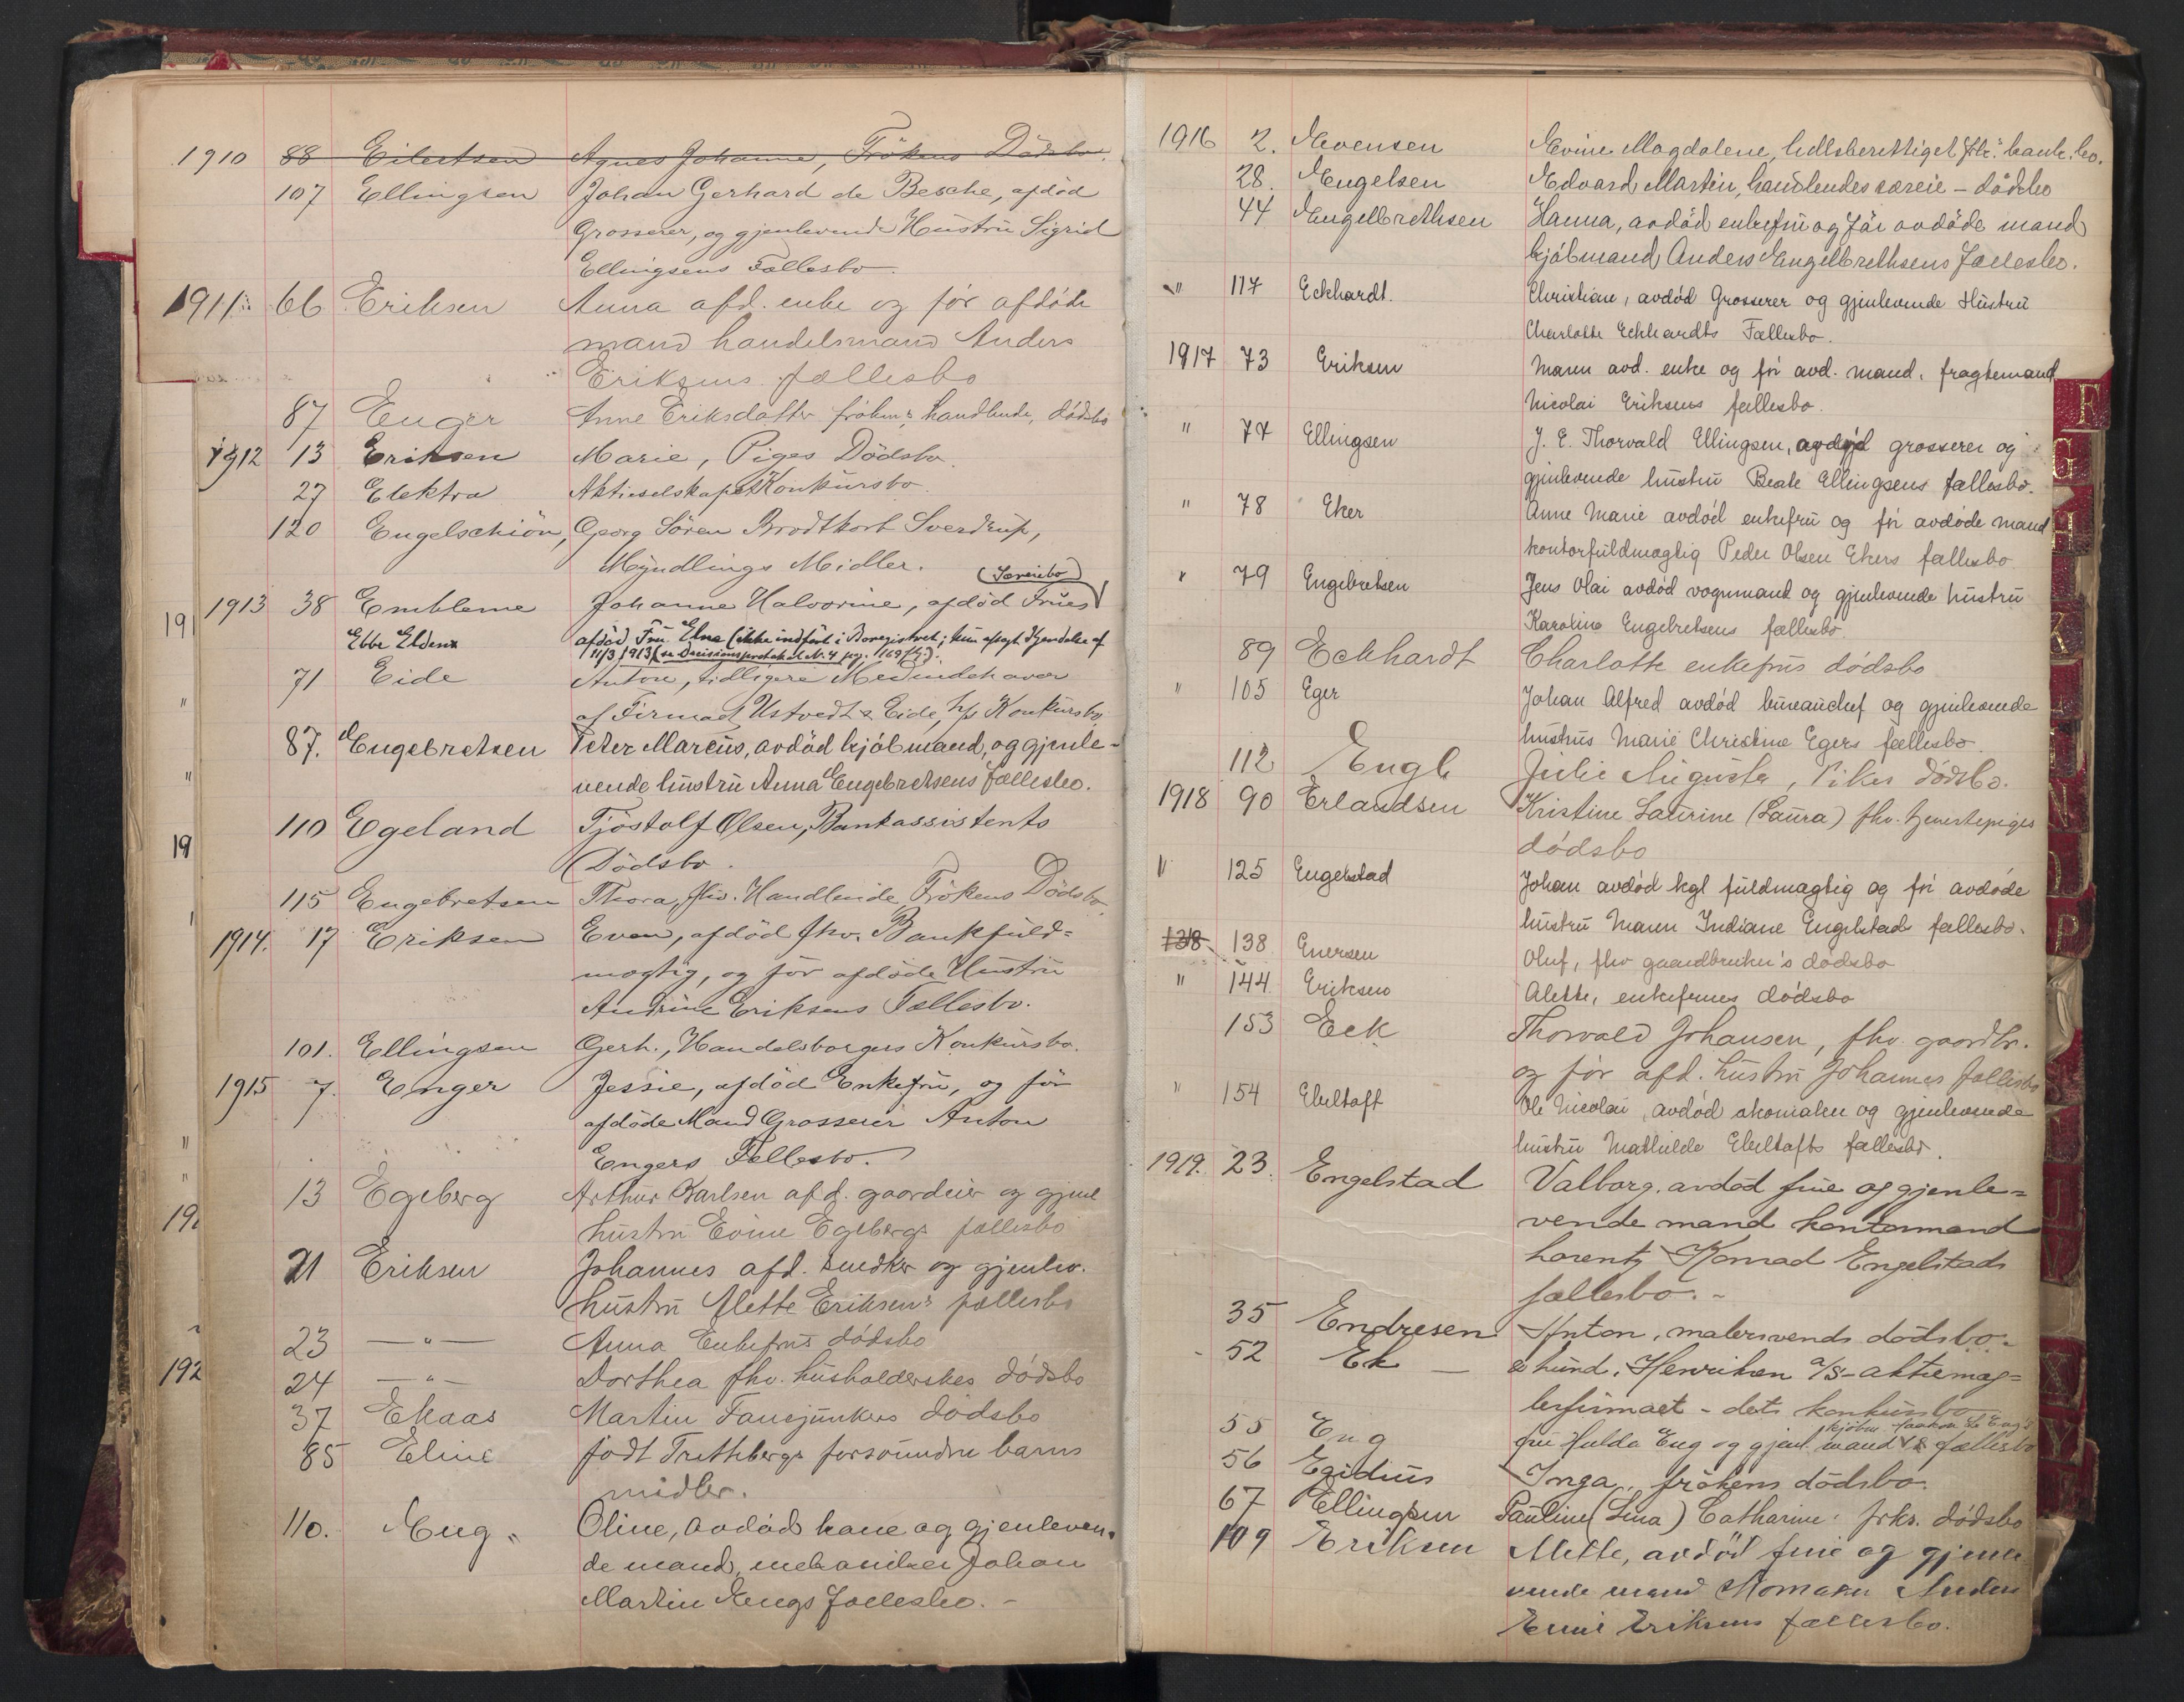 1910 88 Eilertsen Agnes Johanne, Frökens Dödsbo.
107 Ellingsen Johan Gerhard de Besche, afdöd
Grosserer, og gjenlevende Hustru Sigrid
Ellingsens Fællesbo.
1911 66 Eriksen Anna afd. enke og för afdöde
mand handelsmand Anders
Eriksens fællesbo
87 Enger Anne Eriksdatter frökens, handlende, dödsbo
1912 13 Eriksen Marie, Piges Dödsbo.
27 Elektra Aktieselskapet Konkursbo.
120 Engelschiön, Georg Sören Brodtkorb Sverdrup,
Myndlings Midler.
(Særeiebo)
1913 38 Embleme Johanne Halvorine, afdöd Frues
Ebbe Elden afdöd Fru Elna (ikke indført i Boregistret; kun afsagt Kjendelse af
11/3 1913 (se Decisionsprotokol Nr. 4 pag. 169 flg.).
" 71 Eide Anton, tidligere Medindehaver
af Firmaet Ustvedt & Eide, hs Konkursbo.
87. Engebretsen Peter Marcus, avdöd kjöbmand, og gjenle-
vende hustru Anna Engebretsens fællesbo.
110 Egeland Tjöstolf Olsen, Bankassistents
Dödsbo.
115 Engebretsen Thora, fhv. Handlende, Frökens Dödsbo.
1914. 17 Eriksen Even, afdöd fhv. Bankfuld=
mægtig, og för afdöde Hustru
Andrine Eriksens Fællesbo.
101. Ellingsen Gerh., Handelsborgers Konkursbo.
1915 7. Enger Jessie, afdöd Enkefru, og för
afdöde Mand Grosserer Anton
Engers Fællesbo.
13 Egeberg Arthur Karlsen afd. gaardeier og gjenl
hustru Evine Egebergs fællesbo
21 Eriksen Johannes afd. snedker og gjenlev.
hustru Mette Eriksens fællesbo
23 — " — Anna Enkefrus dödsbo
24 — " — Dorthea fhv. husholderskes dödsbo
37 Ekaas Martin Fanejunkers dödsbo
85 Eline födt Trettebergs forsvundne barns
midler.
110. Eng " Oline, avdöd kone og gjenleven-
de mand, mekaniker Johan
Martin Engs fællesbo. -
191
"
"
19
"
"
192
192
1916 2. Evensen Evine Magdalene, hdlsberettiget frk.'s konk.bo.
28. Engelsen Edvard Martin, handlendes særeie - dödsbo
44 Engelbrethsen Hanna, avdöd enkefru og för avdöde mand
kjöbmand Anders Engelbrethsens fællesbo.
" 117 Eckhardt. Christian, avdöd Grosserer og gjenlevende Hustru
Charlotte Eckhardts Fællesbo.
1917 73 Eriksen Maren avd. enke og för avd. mand, fragtemand
Nicolai Eriksens fællesbo.
" 77 Ellingsen J. E. Thorvald Ellingsen, avdöd grosserer og
gjenlevende hustru Beate Ellingsens fællesbo.
" 78 Eker Anne Marie avdöd enkefru og för avdöde mand
kontorfuldmægtig Peder Olsen Ekers fællesbo.
" 79 Engebretsen Jens Olai avdöd vognmand og gjenlevende hustru
Karoline Engebretsens fællesbo.
89 Eckhardt Charlotte enkefrus dödsbo
" 105 Eger Johan Alfred avdöd bureauchef og gjenlevende
hustrus Marie Christine Egers fællesbo.
112 Engh Julie Augusta, Pikes dödsbo.
1918 90 Erlandsen Kristine Laurine (Laura) fhv. tjenestepiges
dödsbo
" 125 Engelstad Johan avdöd kgl fuldmægtig og för avdöde
hustru Maren Indiane Engelstads fællesbo.
138 138 Enersen Oluf, fhv gaardbruker's dödsbo
" 144 Eriksen Alette, enkefrues dödsbo
153 Eek Thorvald Johansen, fhv. gaardbr.
og för afd. hustru Johannes fællesbo
" 154 Ebeltoft Ole Nicolai, avdöd skomaker og gjenlevende
hustru Mathilde Ebeltofts fællesbo.
1919. 23. Engelstad Valborg, avdöd frue og gjenle=
vende mand kontormand
Lorentz Konrad Engelstads
fællesbo. -
35 Endresen Anton, malersvends dödsbo. -
52 Ek — & hund. Henriksen A/S - aktiemæg=
lerfirmaet - dets konkursbo
55 Eng fru Hulda Eng og gjenl. mand fællesbo
56 Egidius Inga, frökens dödsbo.
67 Ellingsen Pauline (Lina) Catharine: frkr. dödsbo
109 Eriksen Mette, avdöd frue og gjenle
vende mand Skomaker Anders
Emil Eriksens fællesbo.
F
G
H
K
N
P
X